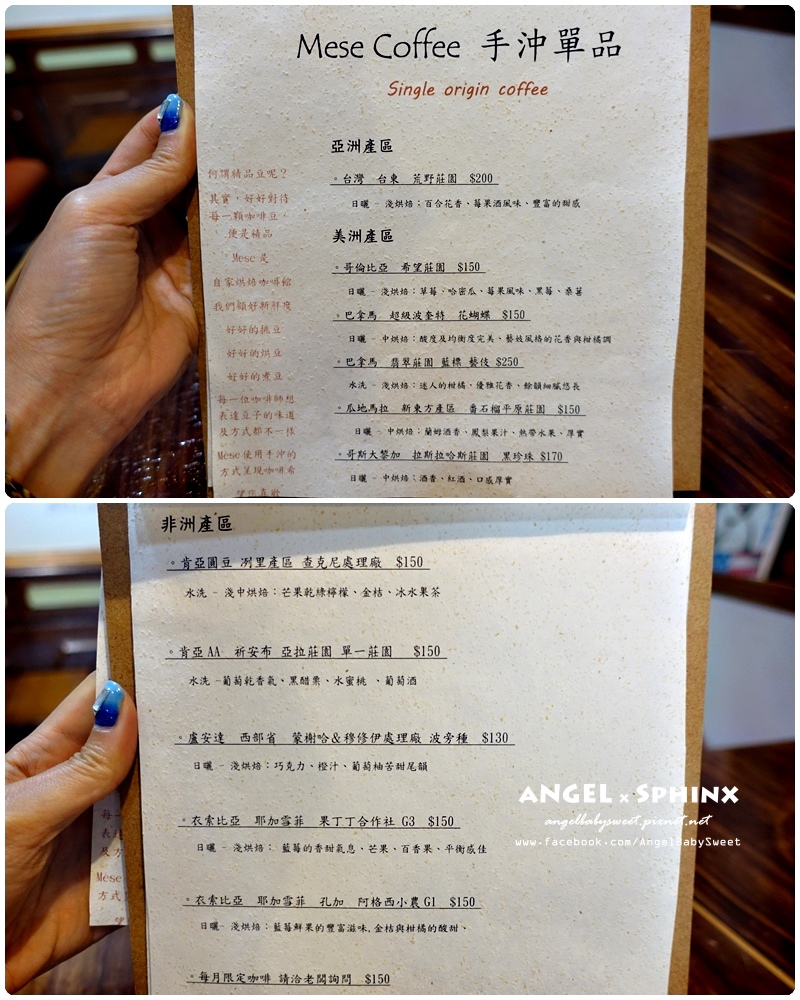 Mese Coffee 手沖單品
Single origin coffee
亞洲產區
。台灣 台東 荒野莊園 $200
日曬 - 淺烘焙：百合花香、莓果酒風味、豐富的甜感
美洲產區
。哥倫比亞 希望莊園 $150
日曬 - 淺烘焙：草莓、哈密瓜、莓果風味、黑莓、桑葚
。巴拿馬 超級波奎特 花蝴蝶 $150
日曬 - 中烘焙：酸度及均衡度完美、藝妓風格的花香與柑橘調
。巴拿馬 翡翠莊園 藍標 藝伎 $250
水洗 - 淺烘焙：迷人的柑橘、優雅花香、餘韻細膩悠長
。瓜地馬拉 新東方產區 番石榴平原莊園 $150
日曬 - 中烘焙：蘭姆酒香、鳳梨果汁、熱帶水果、厚實
。哥斯大黎加 拉斯拉哈斯莊園 黑珍珠 $170
日曬 - 中烘焙：酒香、紅酒、口感厚實
何謂精品豆呢？
其實，好好對待
每一顆咖啡豆，
便是精品
Mese 是
自家烘焙咖啡館
我們顧好新鮮度
好好的挑豆
好好的烘豆
好好的煮豆
每一位咖啡師想
表達豆子的味道
及方式都不一樣
Mese 使用手沖的
方式呈現咖啡希
望你喜歡
非洲產區
。肯亞圓豆 冽里產區 查克尼處理廠 $150
水洗 - 淺中烘焙：芒果乾綠檸檬、金桔、冰水果茶
。肯亞 AA 祈安布 亞拉莊園 單一莊園 $150
水洗 -葡萄乾香氣、黑醋栗、水蜜桃 、葡萄酒
。盧安達 西部省 蒙榭哈＆穆修伊處理廠 波旁種 $130
日曬 - 淺烘焙：巧克力、橙汁、葡萄柚苦甜尾韻
。衣索比亞 耶加雪菲 果丁丁合作社 G3 $150
日曬 - 淺烘焙： 藍莓的香甜氣息、芒果、百香果、平衡感佳
。衣索比亞 耶加雪菲 孔加 阿格西小農 G1 $150
日曬 - 淺烘焙：藍莓鮮果的豐富滋味,金桔與柑橘的酸甜、
。每月限定咖啡 請洽老闆詢問 $150
每一
表達
及方
Mese
方式
望
ANGEL x SPHINX
angelbabysweet.pixnet.net
www.facebook.com/AngelBabySweet